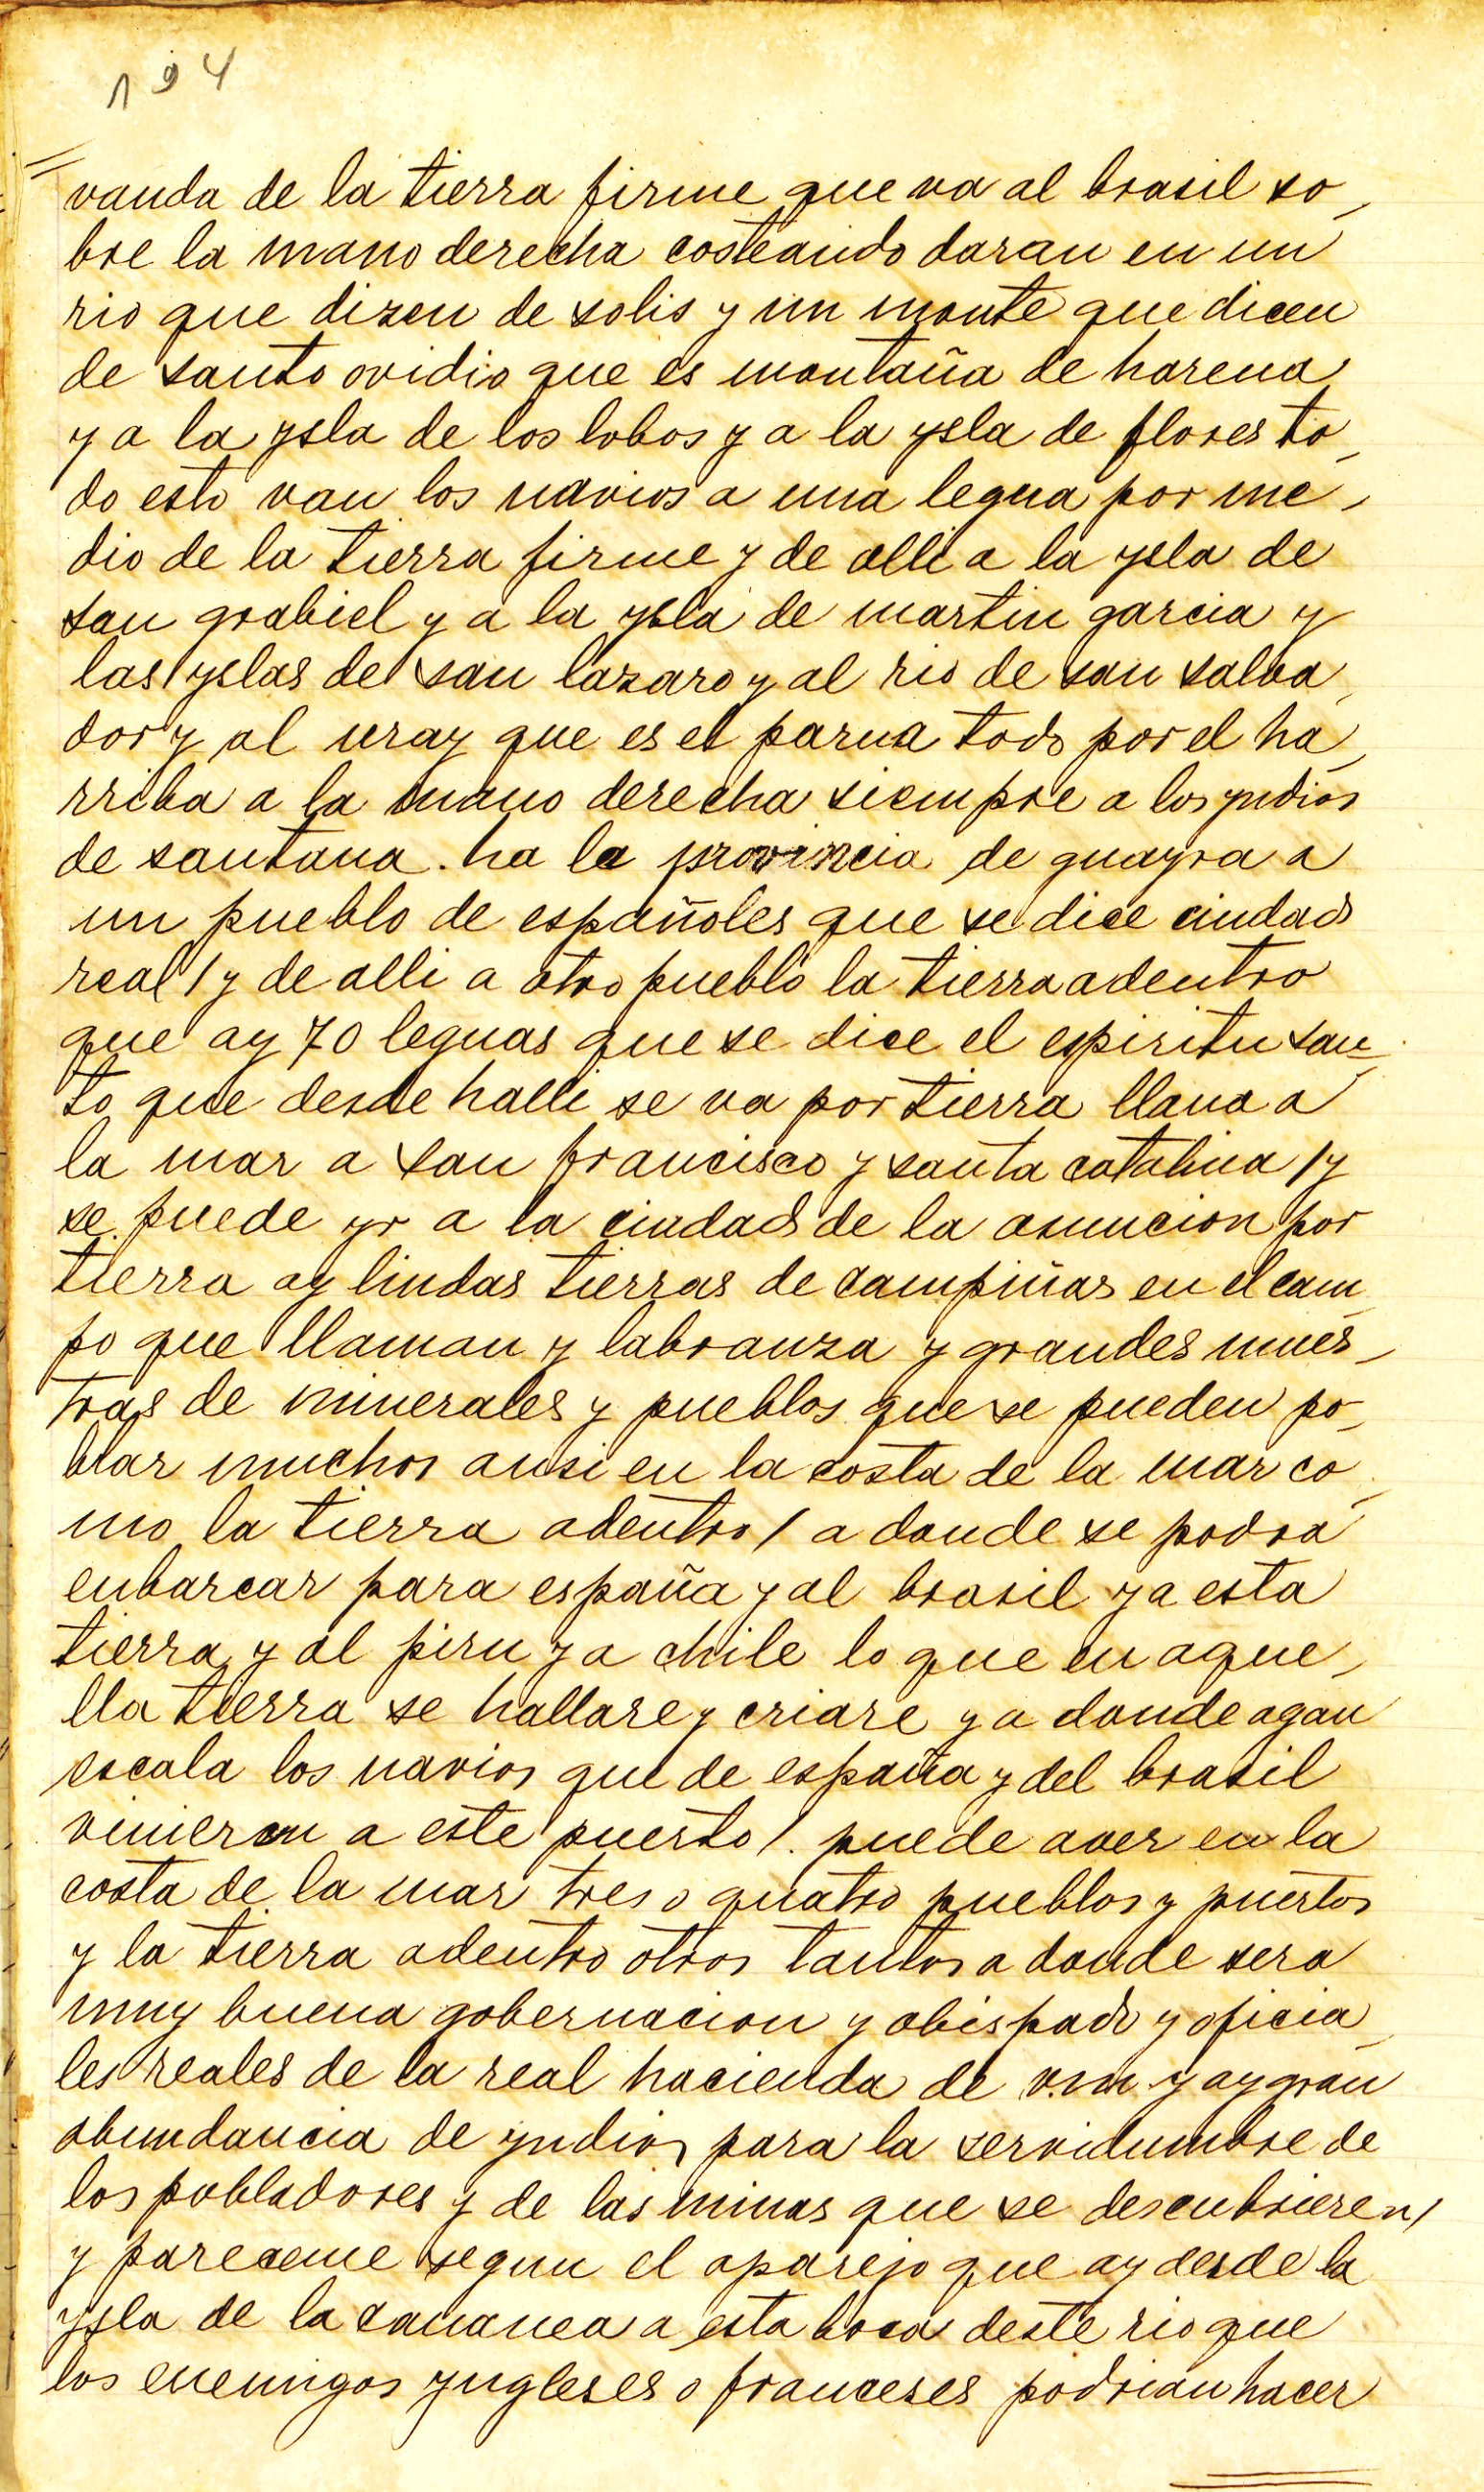 194
vanda de la tierra firme que va al brasil so_
bre la mano derecha costeando daran en un
rio que dizen de solis y un monte que dicen
de santo ovidio que es montaña de harena
y a la ysla de los lobos y a la ysla de flores to_
do esto van los navios a una legua por me_
dio de la tierra firme y de alli a la ysla de
san grabiel y a la ysla de martin garcia y
las yslas de san lazaro y al rio de san salva_
dor y al uray que es el parna todo por el ha_
rriba a la mano derecha siempre a los yndios
de santana. ha la provincia de guayra a
un pueblo de españoles que se dice ciudad
real / y de alli a otro pueblo la tierra adentro
que ay 70 leguas que se dice el espiritu san_
to que desde halli se va por tierra llana a
la mar a san francisco y santa catalina / y
se puede yr a la ciudad de la asuncion por
tierra ay lindas tierras de campiñas en el cam_
po que llaman y labranza y grandes mues_
tras de minerales y pueblos que se pueden po_
blar muchos ansi en la costa de la mar co_
mo la tierra adentro / a donde se podra
enbarcar para españa y al brasil y a esta
tierra y al piru y a chile lo que en aque_
lla tierra se hallare y criare y a donde agan
escala los navios que de españa y del brasil
vinieren a este puerto /. puede aver en la
costa de la mar tres o quatro pueblos y puertos
y la tierra adentro otros tantos a donde sera
muy buena gobernacion y obispado y oficia_
les reales de la real hacienda de v.m y ay gran
abundancia de yndios para la servidumbre de
los pobladores y de las minas que se descubrieren /
y pareceme segun el aparejo que ay desde la
ysla de la cananea a esta boca deste rio que
los enemigos yngleses o franceses podrian hacer